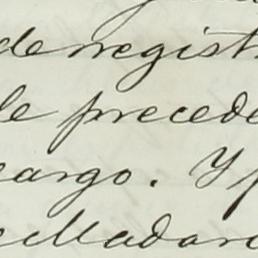 de regist
le precede
cargo. Y p
Madara